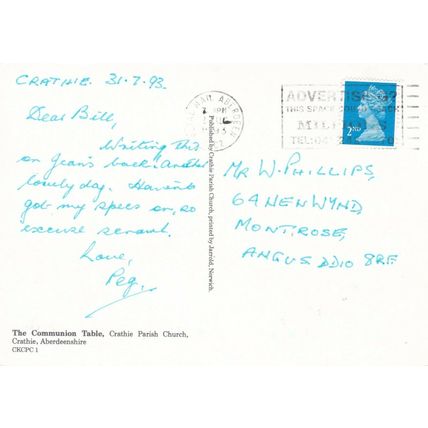 CRATHIE. 31.7.93.
Dear Bill,
Writing this
on Jean's back! Another
lovely day. Haven't
got my specs on, so
excuse scrawl.
Love,
Peg.
The Communion Table, Crathie Parish Church,
Crathie, Aberdeenshire
CKCPC 1
Published by Crathie Parish Church, printed by Jarrold, Norwich.
ABERDEEN
ADVERTISING?
THIS SPACE COULD REACH
MILLIONS
TEL:
2ND
MR W. PHILLIPS,
6 ANEN WYND,
MONTROSE,
ANGUS DD10 8RF.